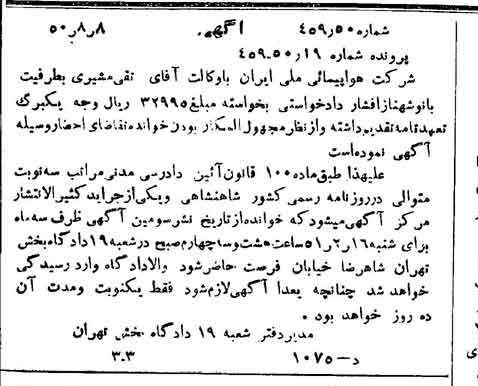 شماره ۴۵۹٫۵۰ آگهی ۸٫۸٫۵۰
پرونده شماره ۱۹٫۵۰-۴۵۹
شرکت هواپیمائی ملی ایران باوکالت آقای تقی مشیری بطرفیت
بانوشهنازافشار دادخواستی بخواسته مبلغ ۳۲۹۹۵ ریال وجه یکبرگ
تعهدنامه تقدیم داشته وازنظر مجهول المکان بودن خوانده تقاضای احضار وسیله
آگهی نموده‌است
علیهذا طبق ماده ۱۰۰ قانون آئین دادرسی مدنی مراتب سه نوبت
متوالی در روزنامه رسمی کشور شاهنشاهی ویکی از جراید کثیرالانتشار
مرکز آگهی میشود که خوانده از تاریخ نشر سومین آگهی ظرف سه ماه
برای شنبه ۱۶٫۲٫۵۱ ساعت هشت وسه چهارم صبح درشعبه ۱۹ دادگاه بخش
تهران شاهرضا خیابان فرصت حاضر شود والا دادگاه وارد رسیدگی
خواهد شد چنانچه بعدا آگهی لازم شود فقط یکنوبت ومدت آن
ده روز خواهد بود .
مدیر دفتر شعبه ۱۹ دادگاه بخش تهران
د-۱۰۷۵ ۳-۳